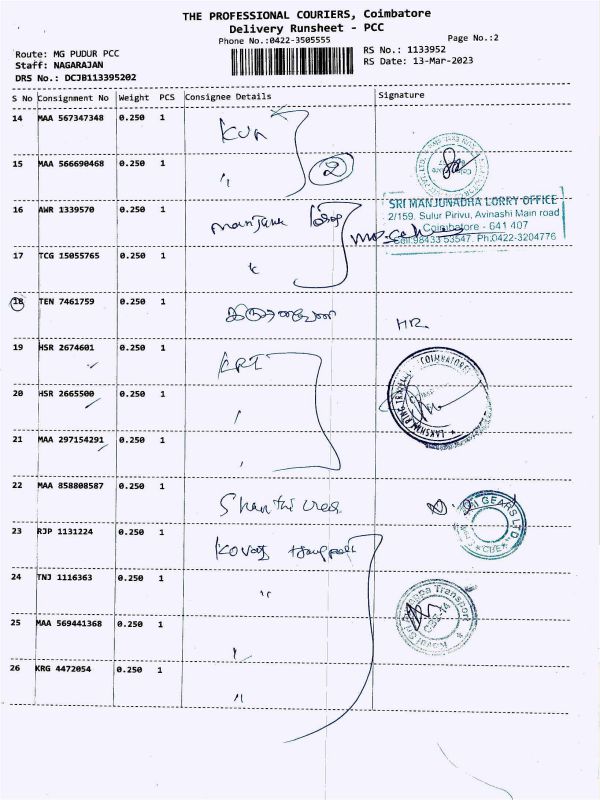 THE PROFESSIONAL COURIERS, Coimbatore
Delivery Runsheet - PCC
Phone No.:0422-3505555
Page No.:2
Route: MG PUDUR PCC
RS No.: 1133952
Staff: NAGARAJAN
RS Date: 13-Mar-2023
DRS No.: DCJB113395202
S No Consignment No Weight PCS Consignee Details Signature
14 MAA 567347348 0.250 1
15 MAA 566690468 0.250 1 " 2
16 AWR 1339570 0.250 1
SRI MANJUNADHA LORRY OFFICE
2/159, Sulur Pirivu, Avinashi Main road
Coimbatore - 641 407
Cell:98433 53547. Ph,0422-3204776
17 TCG 15055765 0.250 1
18 TEN 7461759 0.250 1
HR.
19 HSR 2674601 0.250 1 KRT
COIMBATORE
LAKSHMI RING TRAVELLERS
20 HSR 2665500 0.250 1
21 MAA 297154291 0.250 1
22 MAA 858808587 0.250 1 Shanthi Gears
GEARS LTD
CBE
23 RJP 1131224 0.250 1
24 TNJ 1116363 0.250 1 "
Transport
25 MAA 569441368 0.250 1
26 KRG 4472054 0.250 1 "